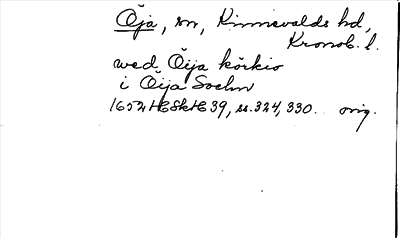 Öja, sn, Kinnevalds hd,
Kronob. l.
wed Öija körkio
i Öija Sochn
1652 HSkHE 39, ss. 324, 330. orig.